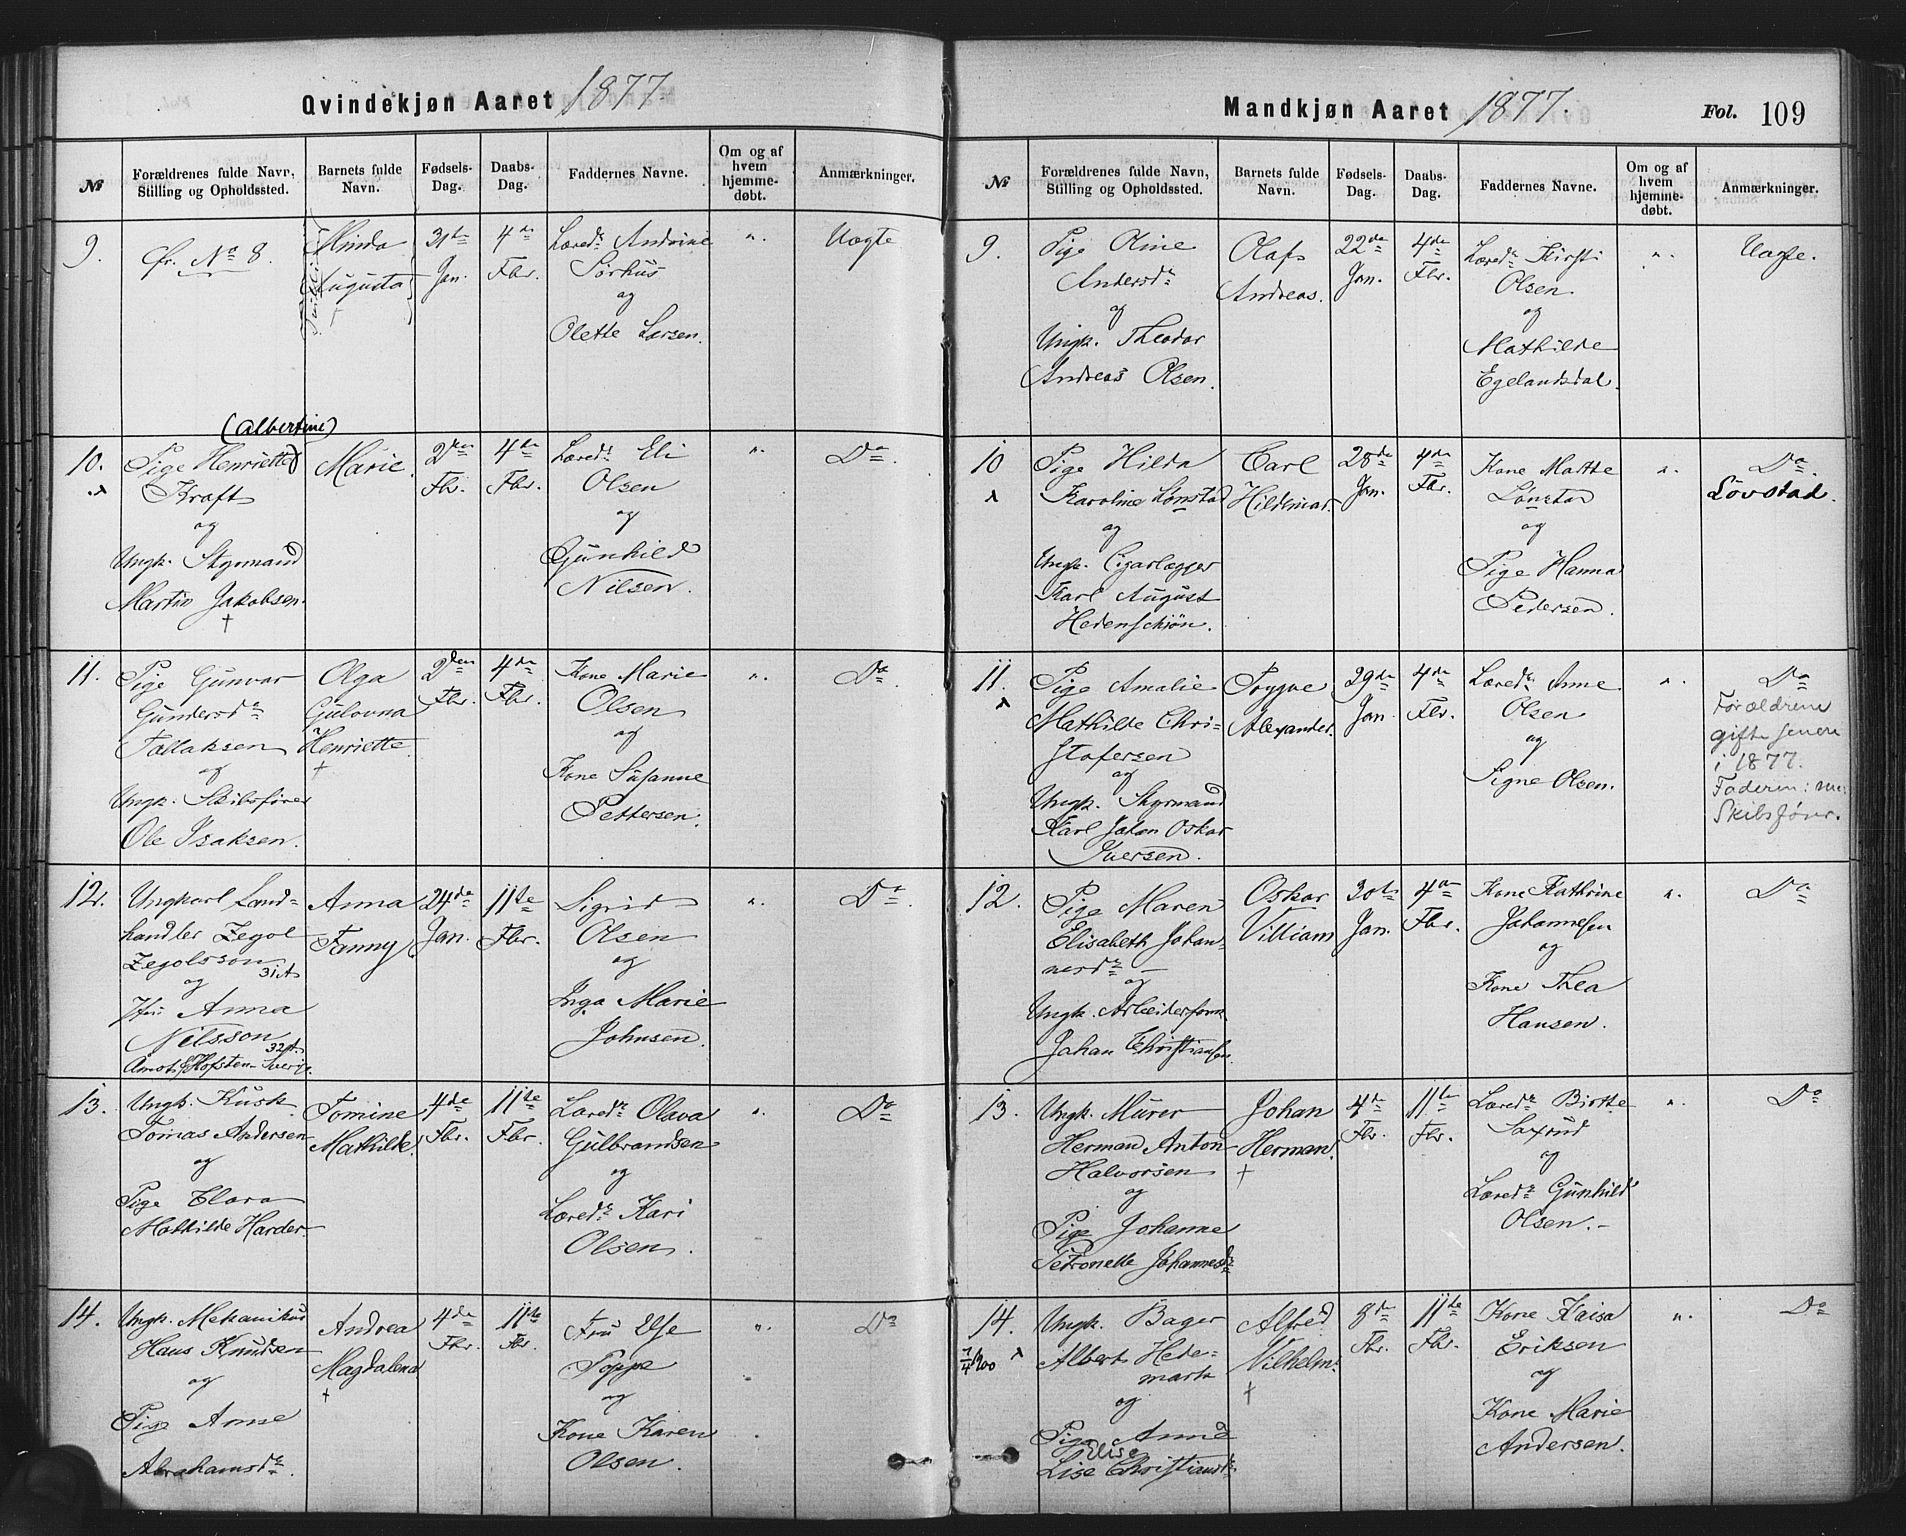 Qvindekjøn Aaret 1877.
№
Forældrenes fulde Navn, Stilling og Opholdssted.
Barnets fulde Navn.
Fødsels-Dag.
Daabs-Dag.
Faddernes Navne.
Om og af hvem hjemmedøbt.
Anmærkninger.
9.
Cfr. No 8.
Minda
Augusta
31te
Jan.
4de
Fbr.
Læred. Andrine
Sørhus
og
Olette Larsen.
".
Uægte
10.
(Albertine)
Pige Henriette
Kraft
og
Ungk. Styrmand
Martin Jakobsen.
Marie.
2den
Fbr.
4de
Fbr.
Læred. Eli
Olsen
og
Gunhild
Nilsen.
".
Do.
11.
Pige Gunvor
Gundersd.
Tallaksen
og
Ungk. Skibsfører
Ole Isaksen.
Olga
Gulovna
Henriette.
2den
Fbr.
4de
Fbr.
Kone Marie
Olsen
og
Kone Susanne
Pettersen.
".
Do.
12.
Ungkarl Land-
handler Zegol
Zegolsson
31 A
og
Jfr. Anna
Nilsson
32 A.
Anna
Fanny
24de
Jan.
11te
Fbr.
Sigrid
Olsen
og
Inga Marie
Johnsen.
".
Do.
13.
Ungk. Kusk
Tomas Andersen
og
Pige Clara
Mathilde Harder
Tomine
Mathilde.
4de
Fbr.
11te
Fbr.
Læred. Olava
Gulbrandsen
og
Læred. Kari
Olsen.
".
Do
14.
Ungk. Mekanikus
Hans Knudsen
og
Pige Anne
Abrahamsd.
Andrea
Magdalena
4de
Fbr.
11te
Fbr.
Fru Else
Poppe
og
Kone Karen
Olsen.
".
Do
Mandkjøn Aaret 1877.
Fol. 109
№
Forældrenes fulde Navn, Stilling og Opholdssted.
Barnets fulde Navn.
Fødsels-Dag.
Daabs-Dag.
Faddernes Navne.
Om og af hvem hjemmedøbt.
Anmærkninger.
9.
Pige Oline
Andersd.
og
Ungk. Theodor
Andreas Olsen.
Olaf
Andreas.
22de
Jan.
4de
Fbr.
Læred. Kirsti
Olsen
og
Mathilde
Egelandsdal.
".
Uægte.
10
Pige Hilda
Karoline Lønstad
og
Ungk. Cigarlægger
Karl August
Hedenschiøn.
Carl
Hildemar.
28de
Jan.
4de
Fbr.
Kone Mathe
Lønstad
og
Pige Hanna
Pedersen.
".
Do.
Lövstad.
11.
Pige Amalie
Mathilde Chri-
stofersen
og
Ungk. Styrmand
Karl Johan Oskar
Iversen.
Trygve
Alexander.
29de
Jan.
4de
Fbr.
Læred. Anne
Olsen
og
Signe Olsen.
".
Do
Forældrene
gift senere
i 1877.
Faderen:
Skibsfører.
12.
Pige Maren
Elisabeth Johan-
nesd.
og
Ungk. Arbeiderform.
Johan Christiansen
Oskar
Villiam
30te
Jan.
4de
Fbr.
Kone Kathrine
Johannesen
og
Kone Thea
Hansen.
".
Do
13.
Ungk. Murer
Herman Anton
Halvorsen
og
Pige Johanne
Petronelle Johannesd.
Johan
Herman.
4de
Fbr.
11te
Fbr.
Læred. Birthe
Saxrud
og
Læred. Gunhild
Olsen.
".
Do
14.
Ungk. Bager
Albert Hede-
mark
og
Pige Anne
Elise
Lise Christiansd.
Alfred
Vilhelm.
8de
Fbr.
11te
Fbr.
Kone Kaisa
Eriksen
og
Kone Marie
Andersen.
".
Do